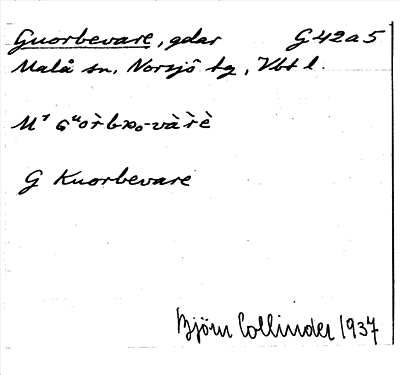 Guorbevare, gdar G42a5
Malå sn, Norsjö tg, Vbt l.
G Kuorbevare
Björn Collinder 1937